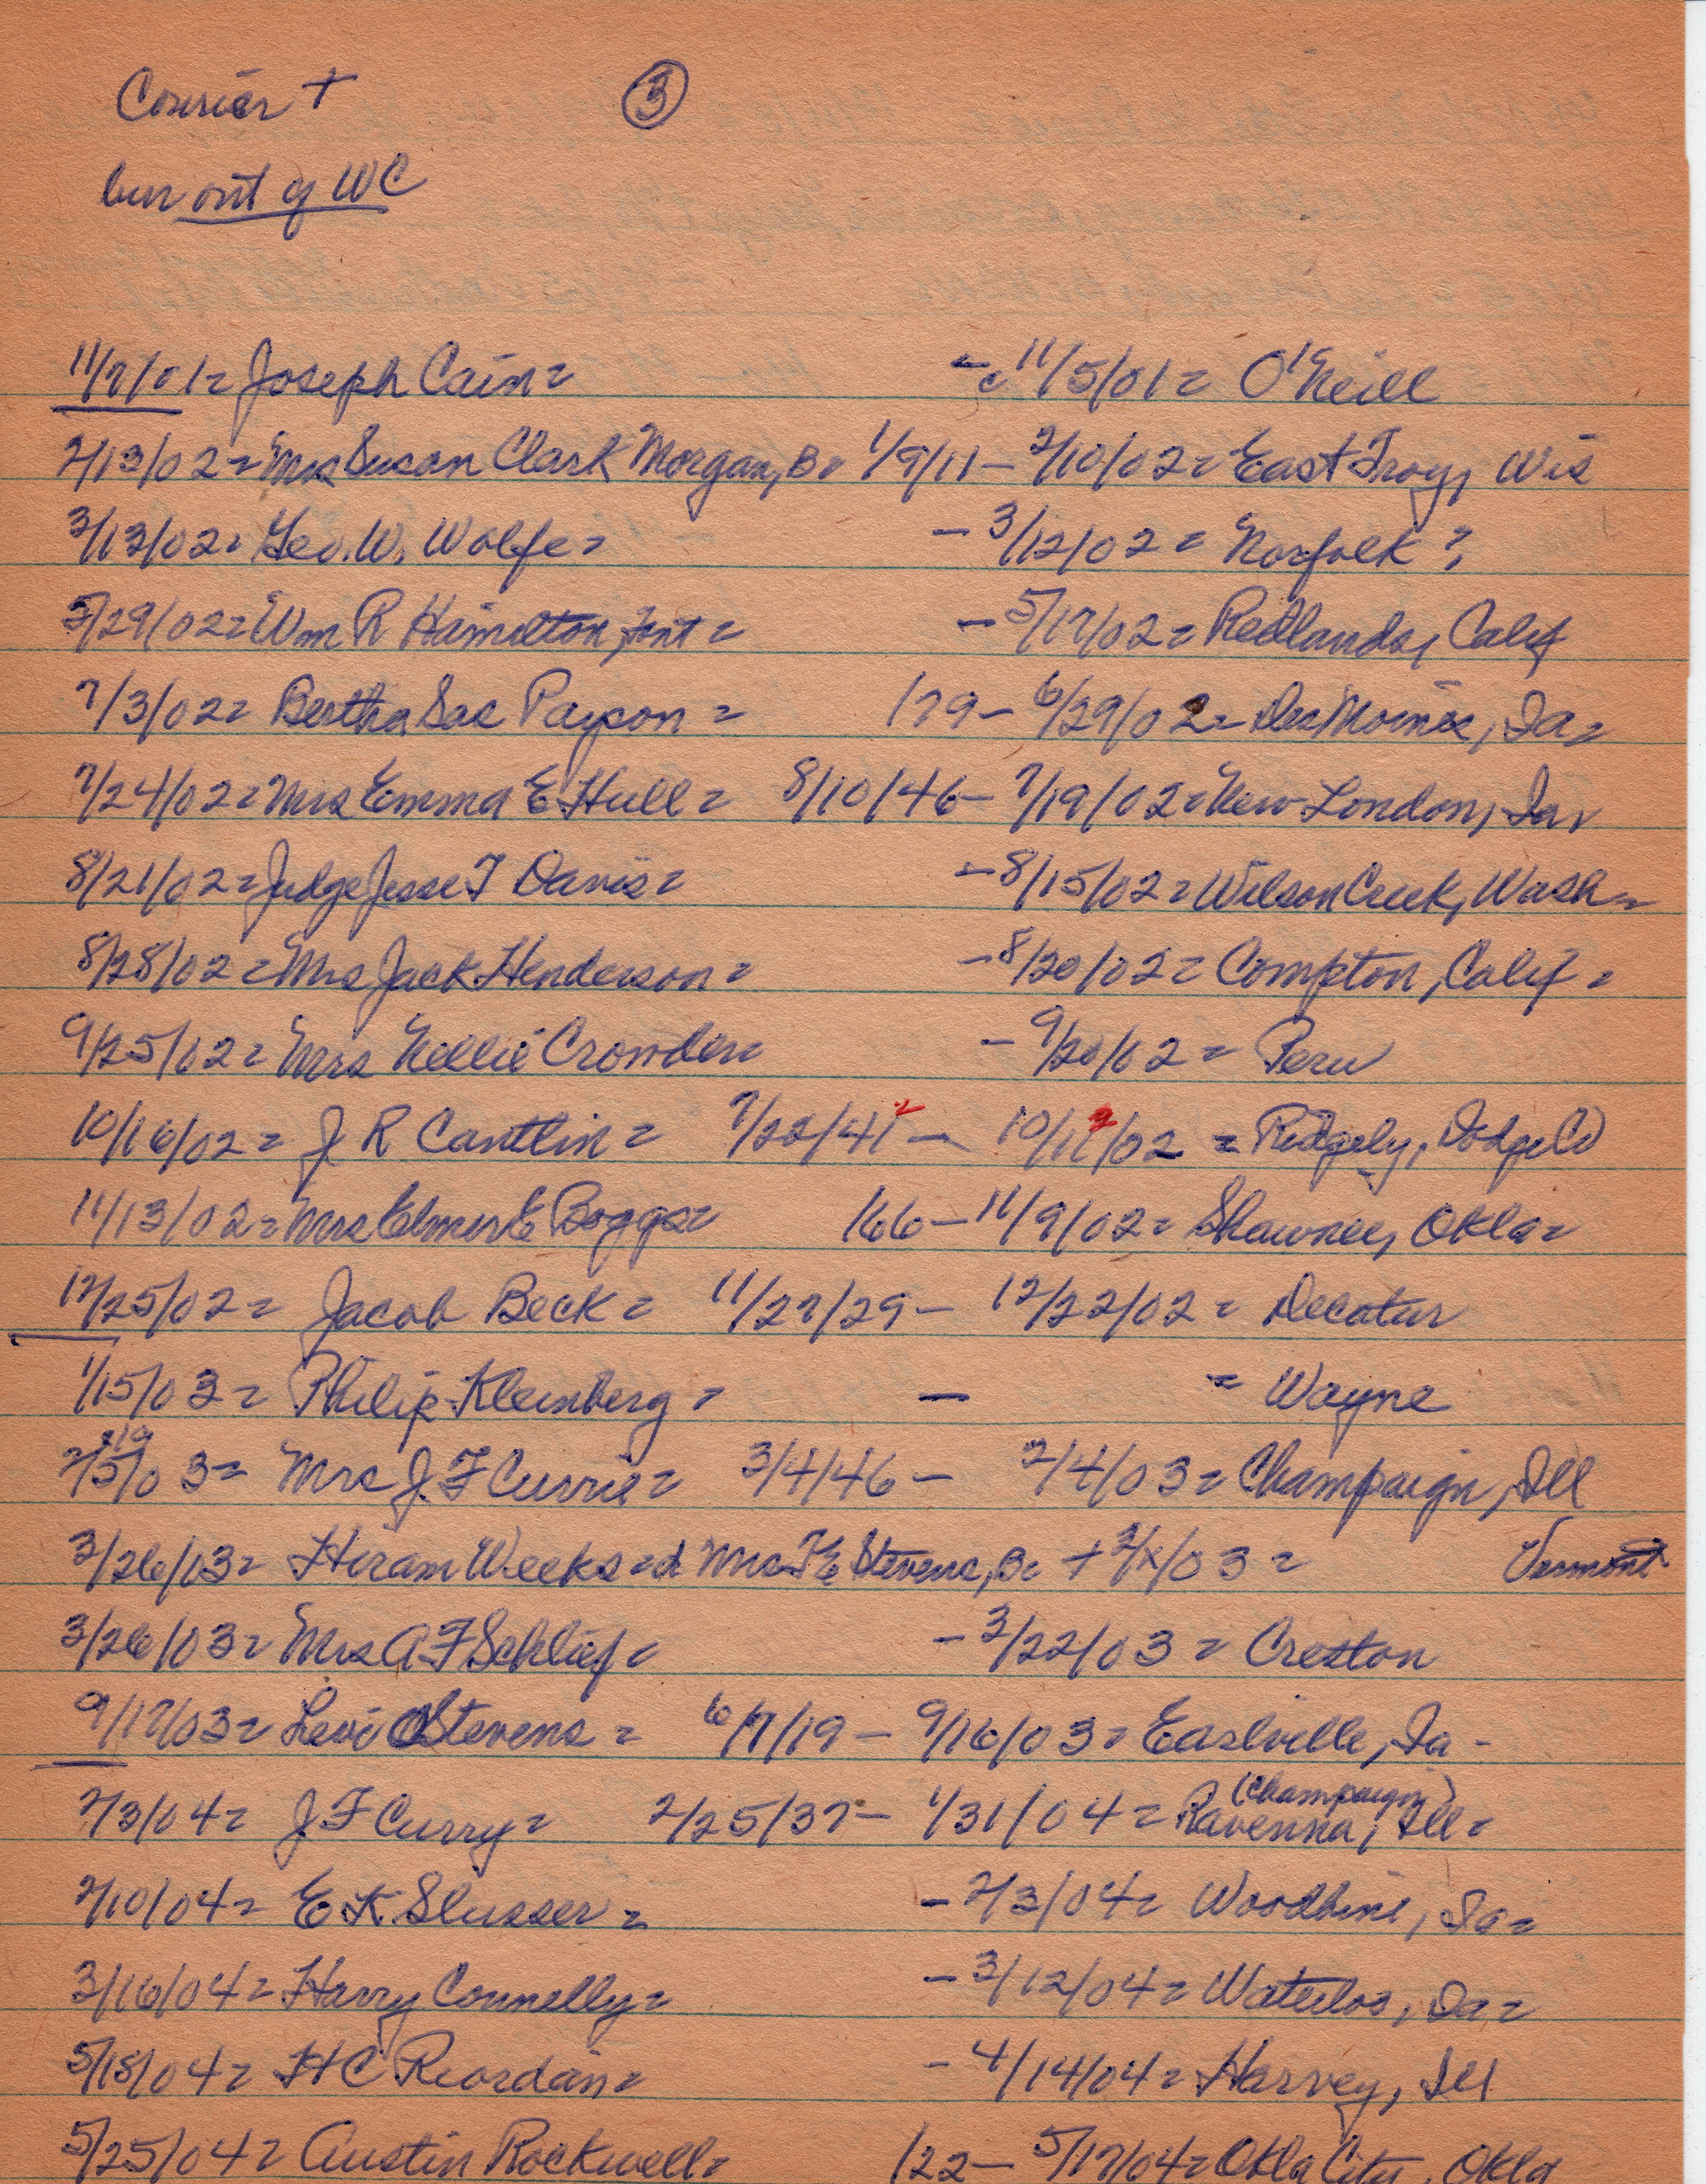 Courier + ③
bur out of WC
11/7/01= Joseph Cain= - 11/5/01= O'Neill
2/13/02= Mrs Susan Clark Morgan, B= 1/9/11 - 2/10/02= East Troy, Wis
3/13/02= Geo. W. Wolfe= - 3/12/02= Norfolk?
5/29/02= Wm R Hamilton, = - 5/17/02= Redlands, Calif
7/3/02= Bertha Sac Payson= /79 - 6/29/02= Des Moines, Ia=
7/24/02= Mrs Emma E Hull= 8/10/46 - 7/19/02= New London, Ia,
8/21/02= Judge Jesse T Davis= - 8/15/02= Wilson Creek, Wash=
8/28/02= Mrs Jack Henderson= - 8/20/02= Compton, Calif=
9/25/02= Mrs Nellie Crowder= - 9/20/02= Peru
10/16/02= J R Cantlin= 7/22/41 2 - 10/11/02 = Ridgely, Dodge Co
11/13/02= Mrs Elmer E Boggs= /66 - 11/9/02= Shawnee, Okla=
12/25/02= Jacob Beck= 11/27/29 - 12/22/02= Decatur
1/15/03= Philip Kleinberg= - = Wayne
2/5/03= Mrs J. F Currie= 3/4/46 - 2/4/03= Champaign, Ill
3/26/03= Hiram Weeks=d Mrs F E Stevens, B= + 3/x/03= Vermont
3/26/03= Mrs A F Schlief= - 3/22/03= Creston
9/17/03= Levi Stevens= 6/7/19 - 9/16/03= Earlville, Ia -
2/3/04= J F Curry= 2/25/37 - 1/31/04= Ravenna, (Champaign) Ill=
2/10/04= E K Slusser= - 2/3/04= Woodbine, Ia=
3/16/04= Harry Connelly= - 3/12/04= Waterloo, Ia=
5/18/04= H C Reordan= - 4/14/04= Harvey, Ill
5/25/04= Austin Rockwell= /22 - 5/17/04= Okla City, Okla